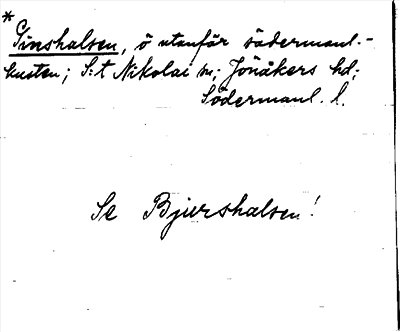 *
Ginshalsen, ö utanför södermanl.-
kusten; S:t Nikolai sn; Jönåkers hd;
Södermanl. l.
Se Bjurshalsen!